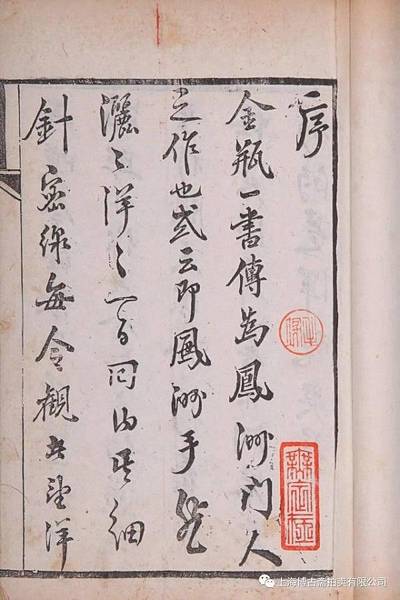 序
金瓶一書傳為鳳洲門人
之作也或云即鳳洲手然
灑〻洋〻一百回内其細
針密線每令觀者望洋
上海博古斋拍卖有限公司